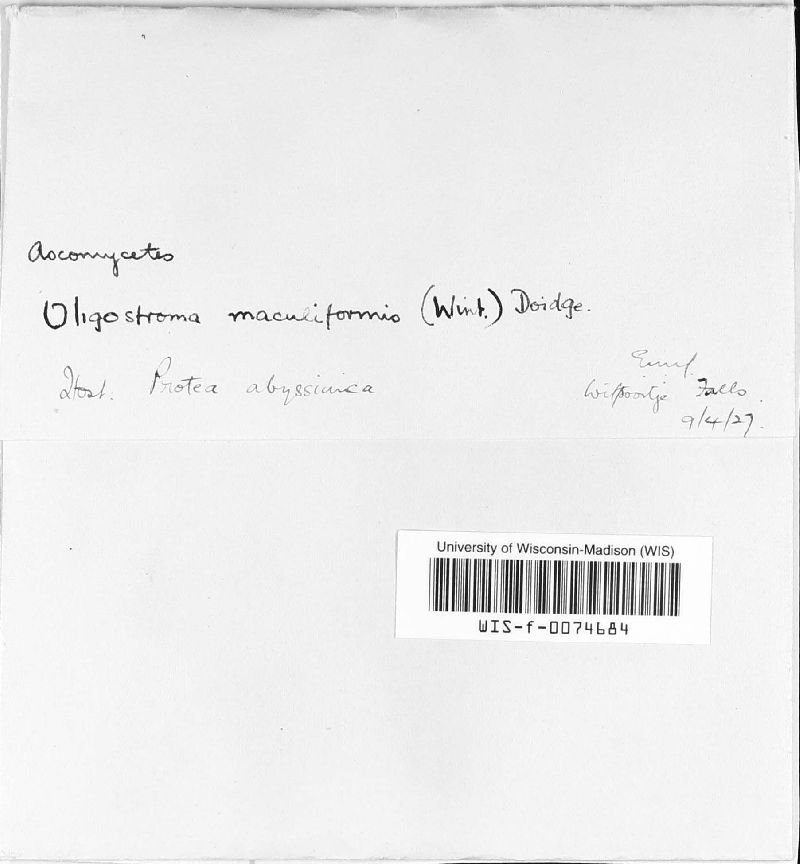 Ascomycetes
Oligostroma maculiformis (Wint.) Doidge.
Host. Protea abyssinica
Witpoortje Falls.
9/4/27.
University of Wisconsin-Madison (WIS)
WIS-f-0074684